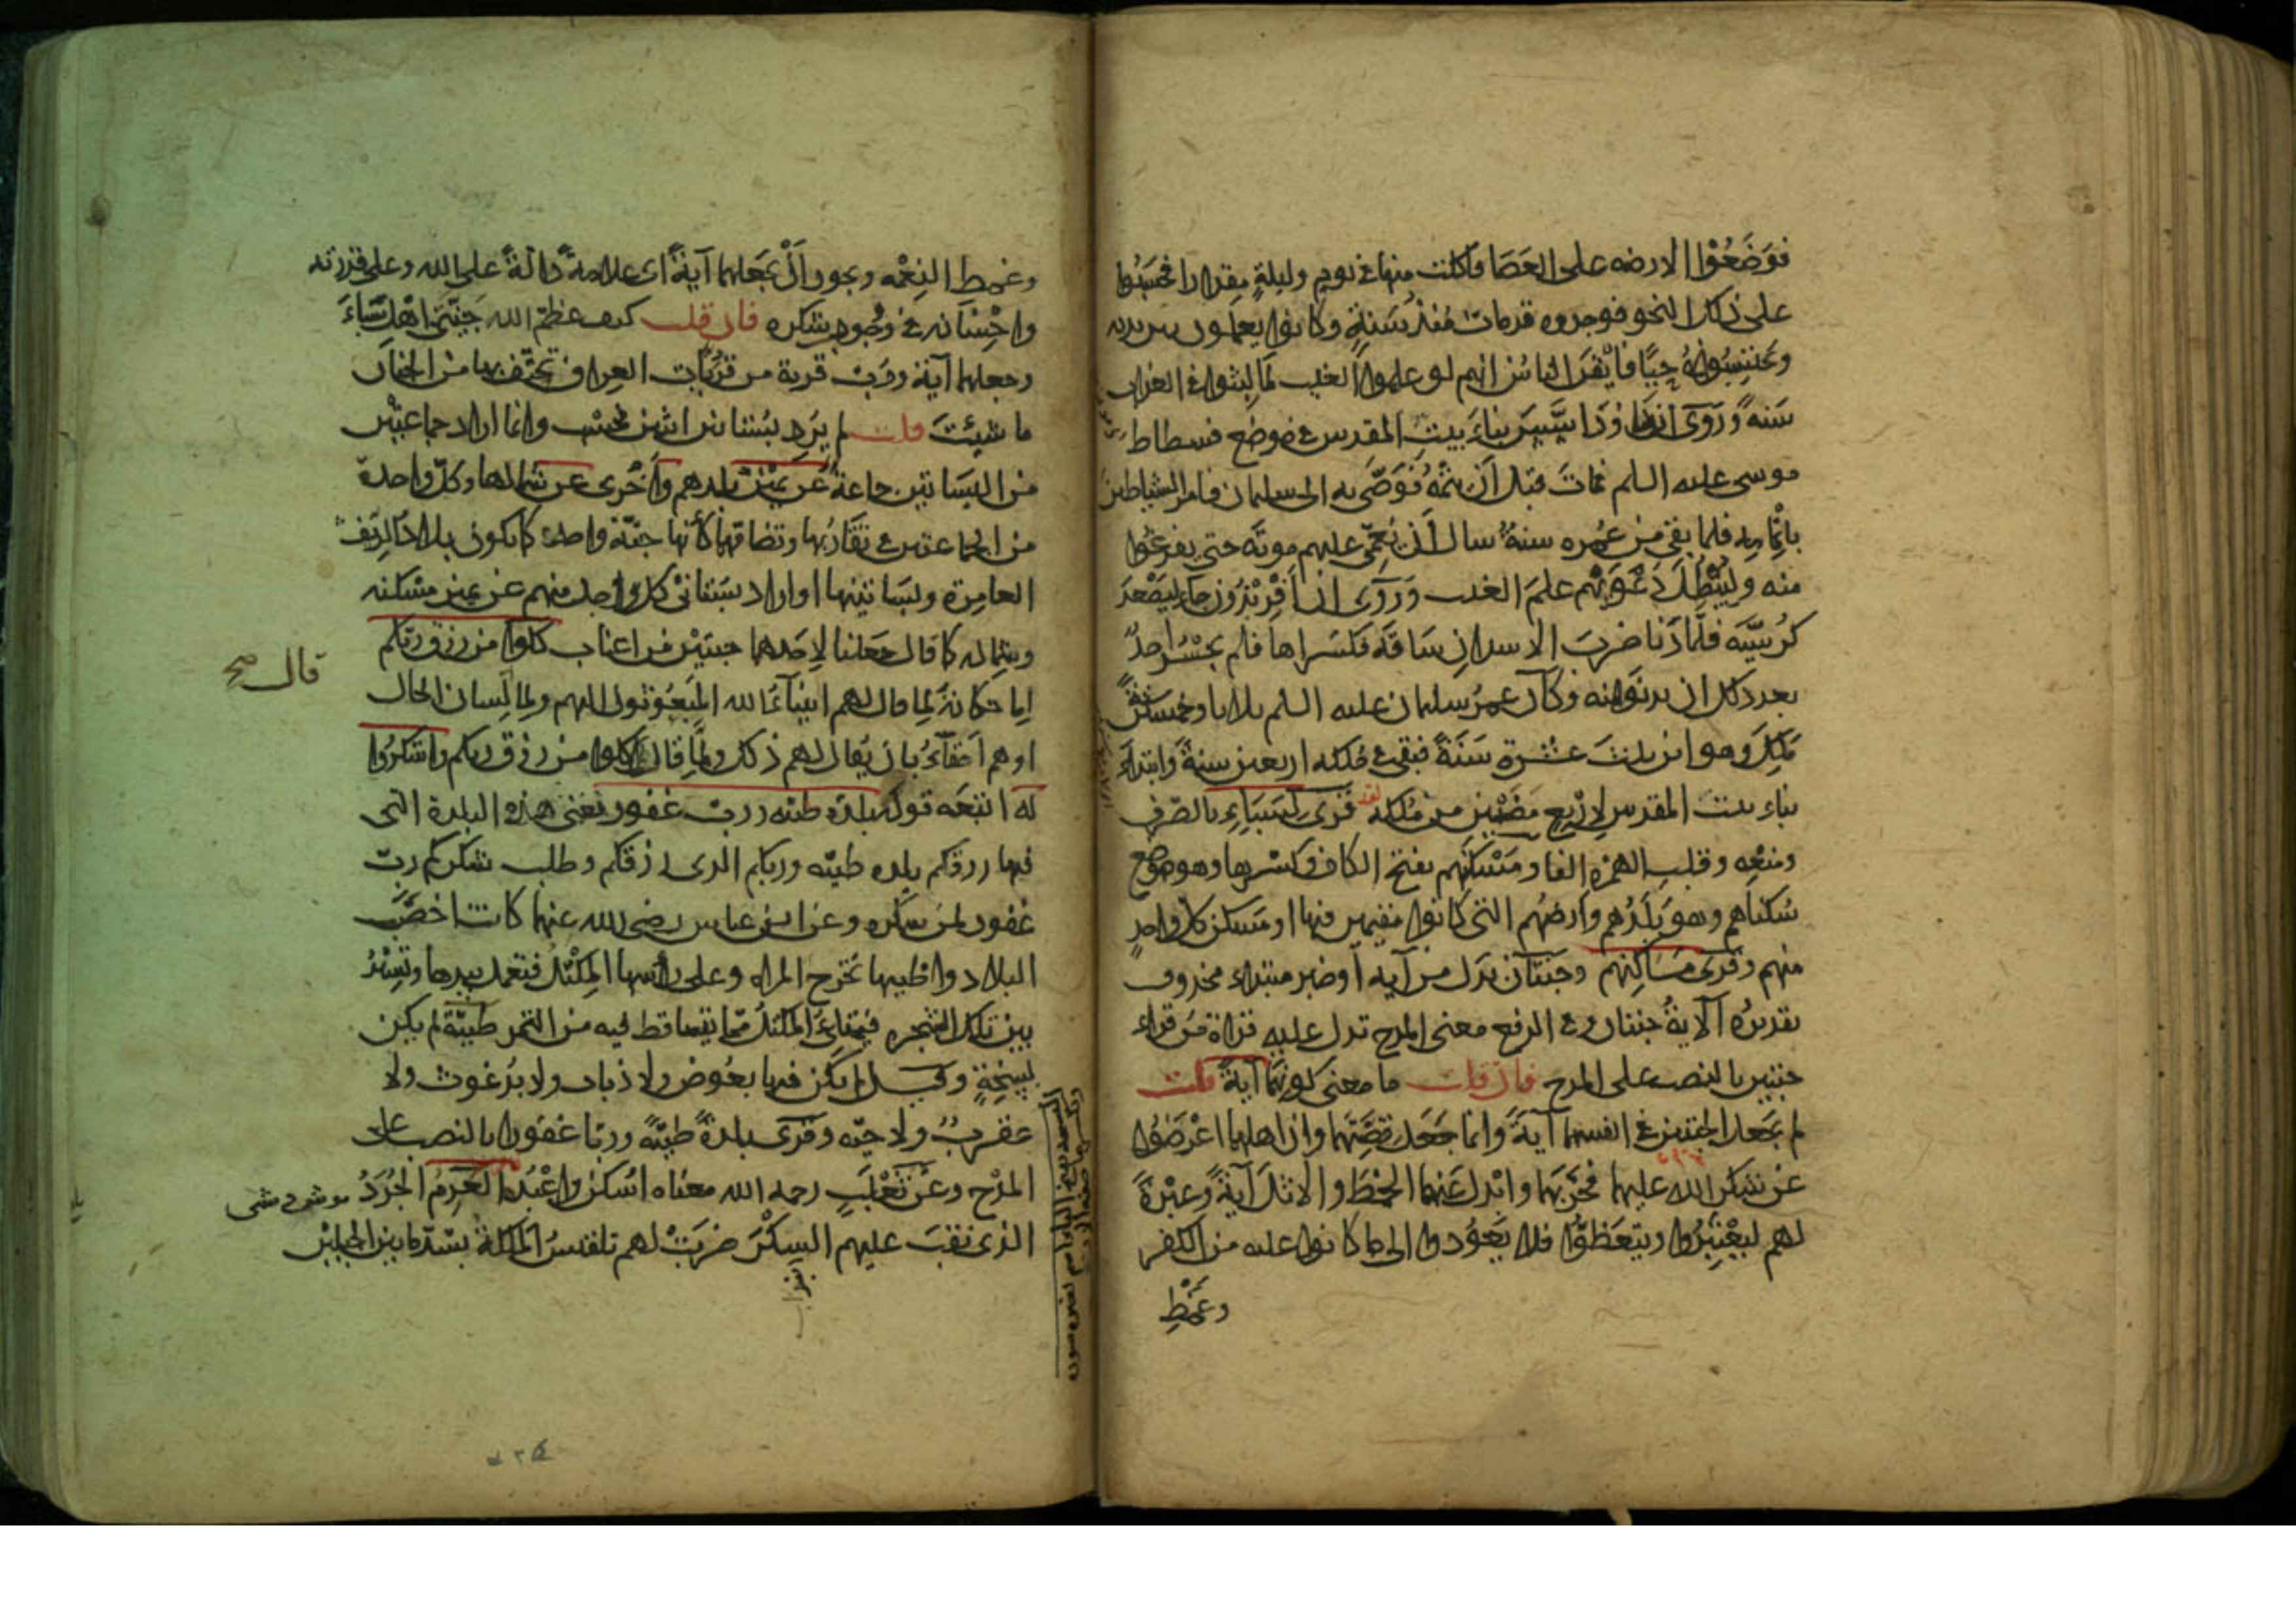 فوضعوا الارضه على العصا فاكلت منها في يوم وليلة مقدارا فحسبوا
على ذلك النحو فوجدوه قد مات منذ سنة وكانوا يعملون بين يديه
ويحسبونه حيا فايقن الناس انهم لو علموا الغيب لما لبثوا في العذاب
سنة وروى ان داود اسس بناء بيت المقدس في موضع فسطاط
موسى عليه السلم فمات قبل ان يتمه فوصى به الى سليمان فامر الشياطين
باتمامه فلما بقى من عمره سنة سال ان يعمى عليهم موته حتى يفرغوا
منه وليبطل دعوتهم علم الغيب وروى ان افريدون جاء ليصعد
كرسيه فلما دنا ضرب الاسدان ساقه فكسراها فلم يجسر احد
بعد ذلك ان يدنو منه وكان عمر سليمان عليه السلم ثلاثا وخمسين سنة
ملك وهو ابن ثلث عشرة سنة فبقى في ملكه اربعين سنة وابتداء
بناء بيت المقدس لاربع مضين من ملكه قرى لسباء بالصرف
ومنعه وقلب الهمزه الفا ومسكنهم بفتح الكاف وكسرها وهو موضع
سكناهم وهو بلدهم وارضهم التى كانوا مقيمين فيها او مسكن كل واحد
منهم وقرى مساكنهم وجنتان بدل من آية او خبر مبتداء محذوف
تقديره الآية جنتان وفى الرفع معنى المدح تدل عليه قراة من قراء
جنتين بالنصب على المدح فان قلت ما معنى كونهما آية قلت
لم يجعل الجنتين في انفسهما آية وانما جعل قصتهما وان اهلها اعرضوا
عن شكر الله عليهما فخربهما وابدل عنهما الخمط والاثل آية وعبرة
لهم ليعتبروا ويتعظوا فلا يعودوا الى ما كانوا عليه من الكفر
وغمط
وغمط النعمه ويجوز ان يجعلهما آية اى علامة دالة على الله وعلى قدرته
واحسانه في وجوب شكره فان قلت كيف عظم الله جنتى اهل سباء
وجعلهما آية ورب قرية من قريات العراق تحتف بها من الجنان
ما شيئت قلت لم يرد بستانين اثنين فحسب وانما اراد جماعتين
من البساتين جماعة عن يمين بلدهم واخرى عن شمالها وكل واحدة
من الجماعتين في تقاربها وتضامها كأنها جنة واحدة كما يكون بلاد الريف
العامرة وبساتينها او اراد بستانى كل واحد منهم عن يمين مسكنه
وشماله كما قال جعلنا لاحدهما جنتين من اعناب كلوا من رزق ربكم
قال صح
اما حكاية لما قال لهم انبياء الله المبعوثون اليهم ولما لسان الحال
اوهم احقاء بان يقال لهم ذلك ولما قال كلوا من رزق ربكم واشكروا
له اتبعه قوله بلدة طيبه ورب غفور يعنى هذه البلدة التى
فيها رزقكم بلده طيبه وربكم الذى رزقكم وطلب شكركم رب
غفور لمن شكره وعن ابن عباس رضى الله عنهما كانت اخصب
البلاد واطيبها تخرج المراة وعلى راسها المكتل فتعمل بيدها وتسير
بين تلك الشجره فيمتلى المكتل مما يتساقط فيه من الثمر طيبة لم يكن
سبخة وقيل لم يكن فيها بعوض ولا ذباب ولا برغوث ولا
عقرب ولا حية وقرى بلدة طيبة وربا غفورا بالنصب على
المدح وعن ثعلب رحمه الله معناه اسكن واعبد العرم الجرذ
الذى نقب عليهم السكر ضربت لهم بلقيس الملكة بسد ما بين الجبلين